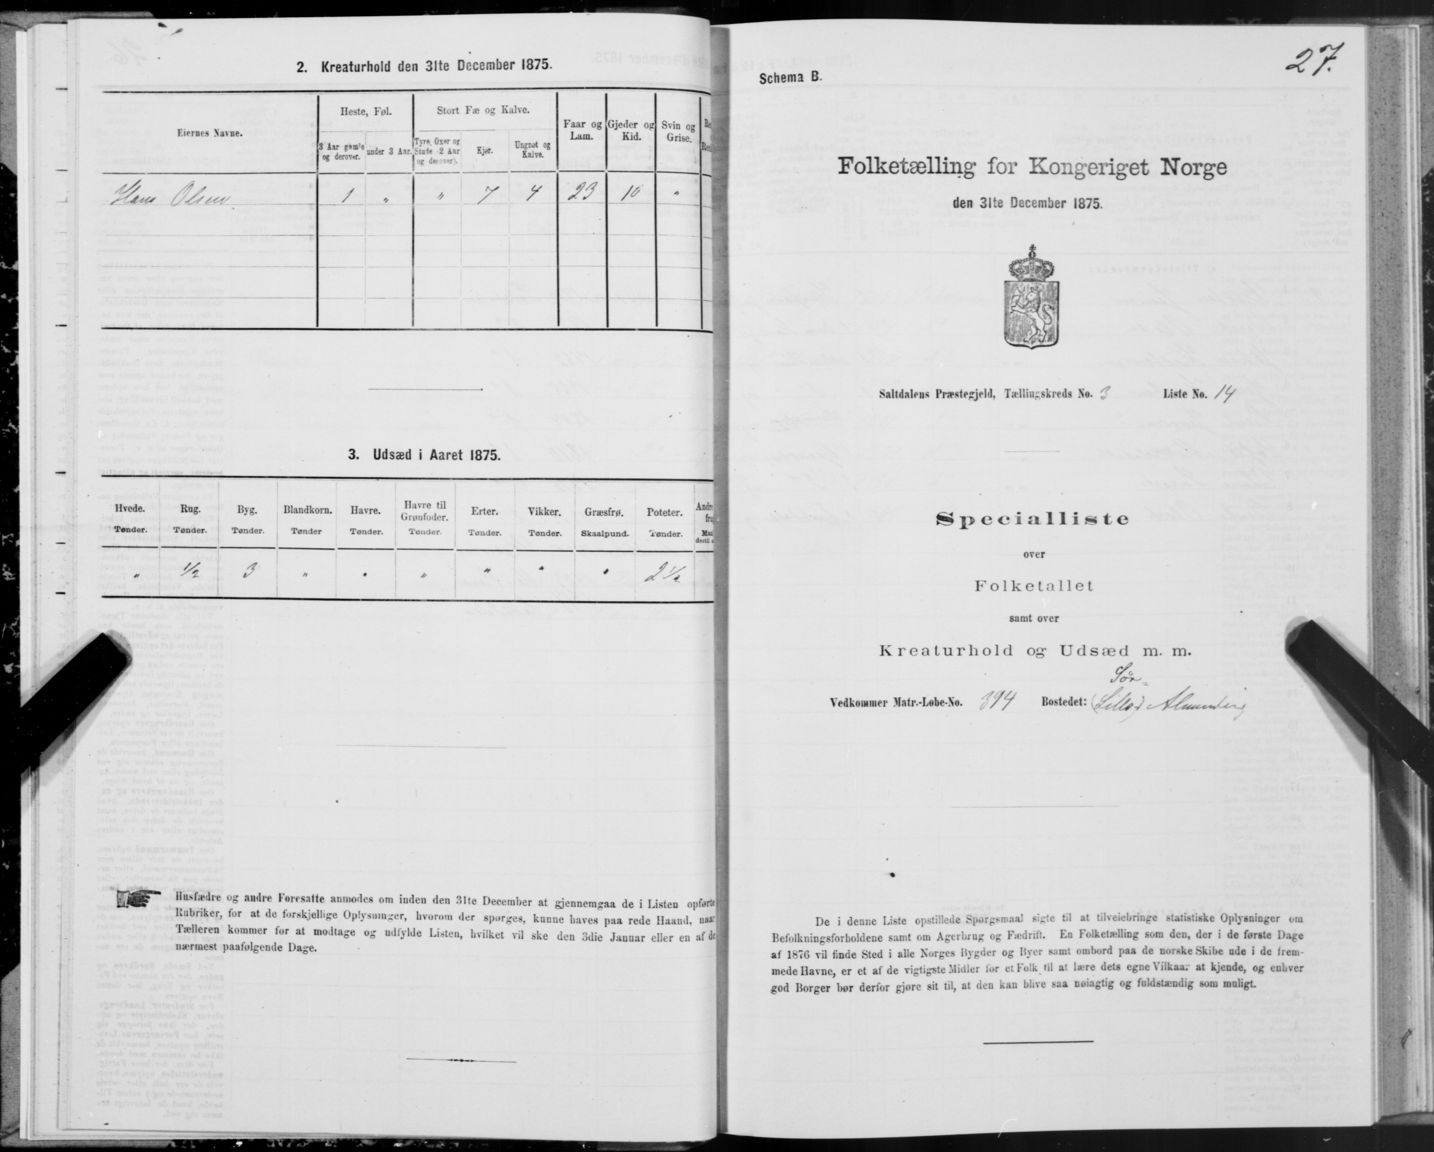 2. Kreaturhold den 31te December 1875.
Eiernes Navne.
Heste, Føl.
Stort Fæ og Kalve.
Faar og Lam.
Gjeder og Kid.
Svin og Grise.
3 Aar gamle og derover.
under 3 Aar.
Tyre, Oxer og Stude 2 Aar og derover).
Kjør.
Ungnøt og Kalve.
Hans Olsen 1 " " 7 4 23 10 "
3. Udsæd i Aaret 1875.
Hvede. Rug. Byg. Blandkorn. Havre. Havre til Grønfoder. Erter. Vikker. Græsfrø. Poteter.
Tønder. Tønder. Tønder. Tønder Tønder. Tønder. Tønder. Tønder. Skaalpund. Tønder.
" 1/2 3 " " " " " " 2 1/2
Husfædre og andre Foresatte anmodes om inden den 31te December at gjennemgaa de i Listen opførte
Rubriker, for at de forskjellige Oplysninger, hvorom der spørges, kunne haves paa rede Haand, naar
Tælleren kommer for at modtage og udfylde Listen, hvilket vil ske den 3die Januar eller en af de
nærmest paafølgende Dage.
27.
Schema B.
Folketælling for Kongeriget Norge
den 31te December 1875.
Saltdalens Præstegjeld, Tællingskreds No. 3 Liste No. 14
Specialliste
over
Folketallet
samt over
Kreaturhold og Udsæd m. m.
Sør-
Vedkommer Matr.-Løbe-No. 394 Bostedet: (Lille)
De i denne Liste opstillede Spørgsmaal sigte til at tilveiebringe statistiske Oplysninger om
Befolkningsforholdene samt om Agerbrug og Fædrift. En Folketælling som den, der i de første Dage
af 1876 vil finde Sted i alle Norges Bygder og Byer samt ombord paa de norske Skibe ude i de frem-
mede Havne, er et af de vigtigste Midler for et Folk til at lære dets egne Vilkaar at kjende, og enhver
god Borger bør derfor gjøre sit til, at den kan blive saa nøiagtig og fuldstændig som muligt.